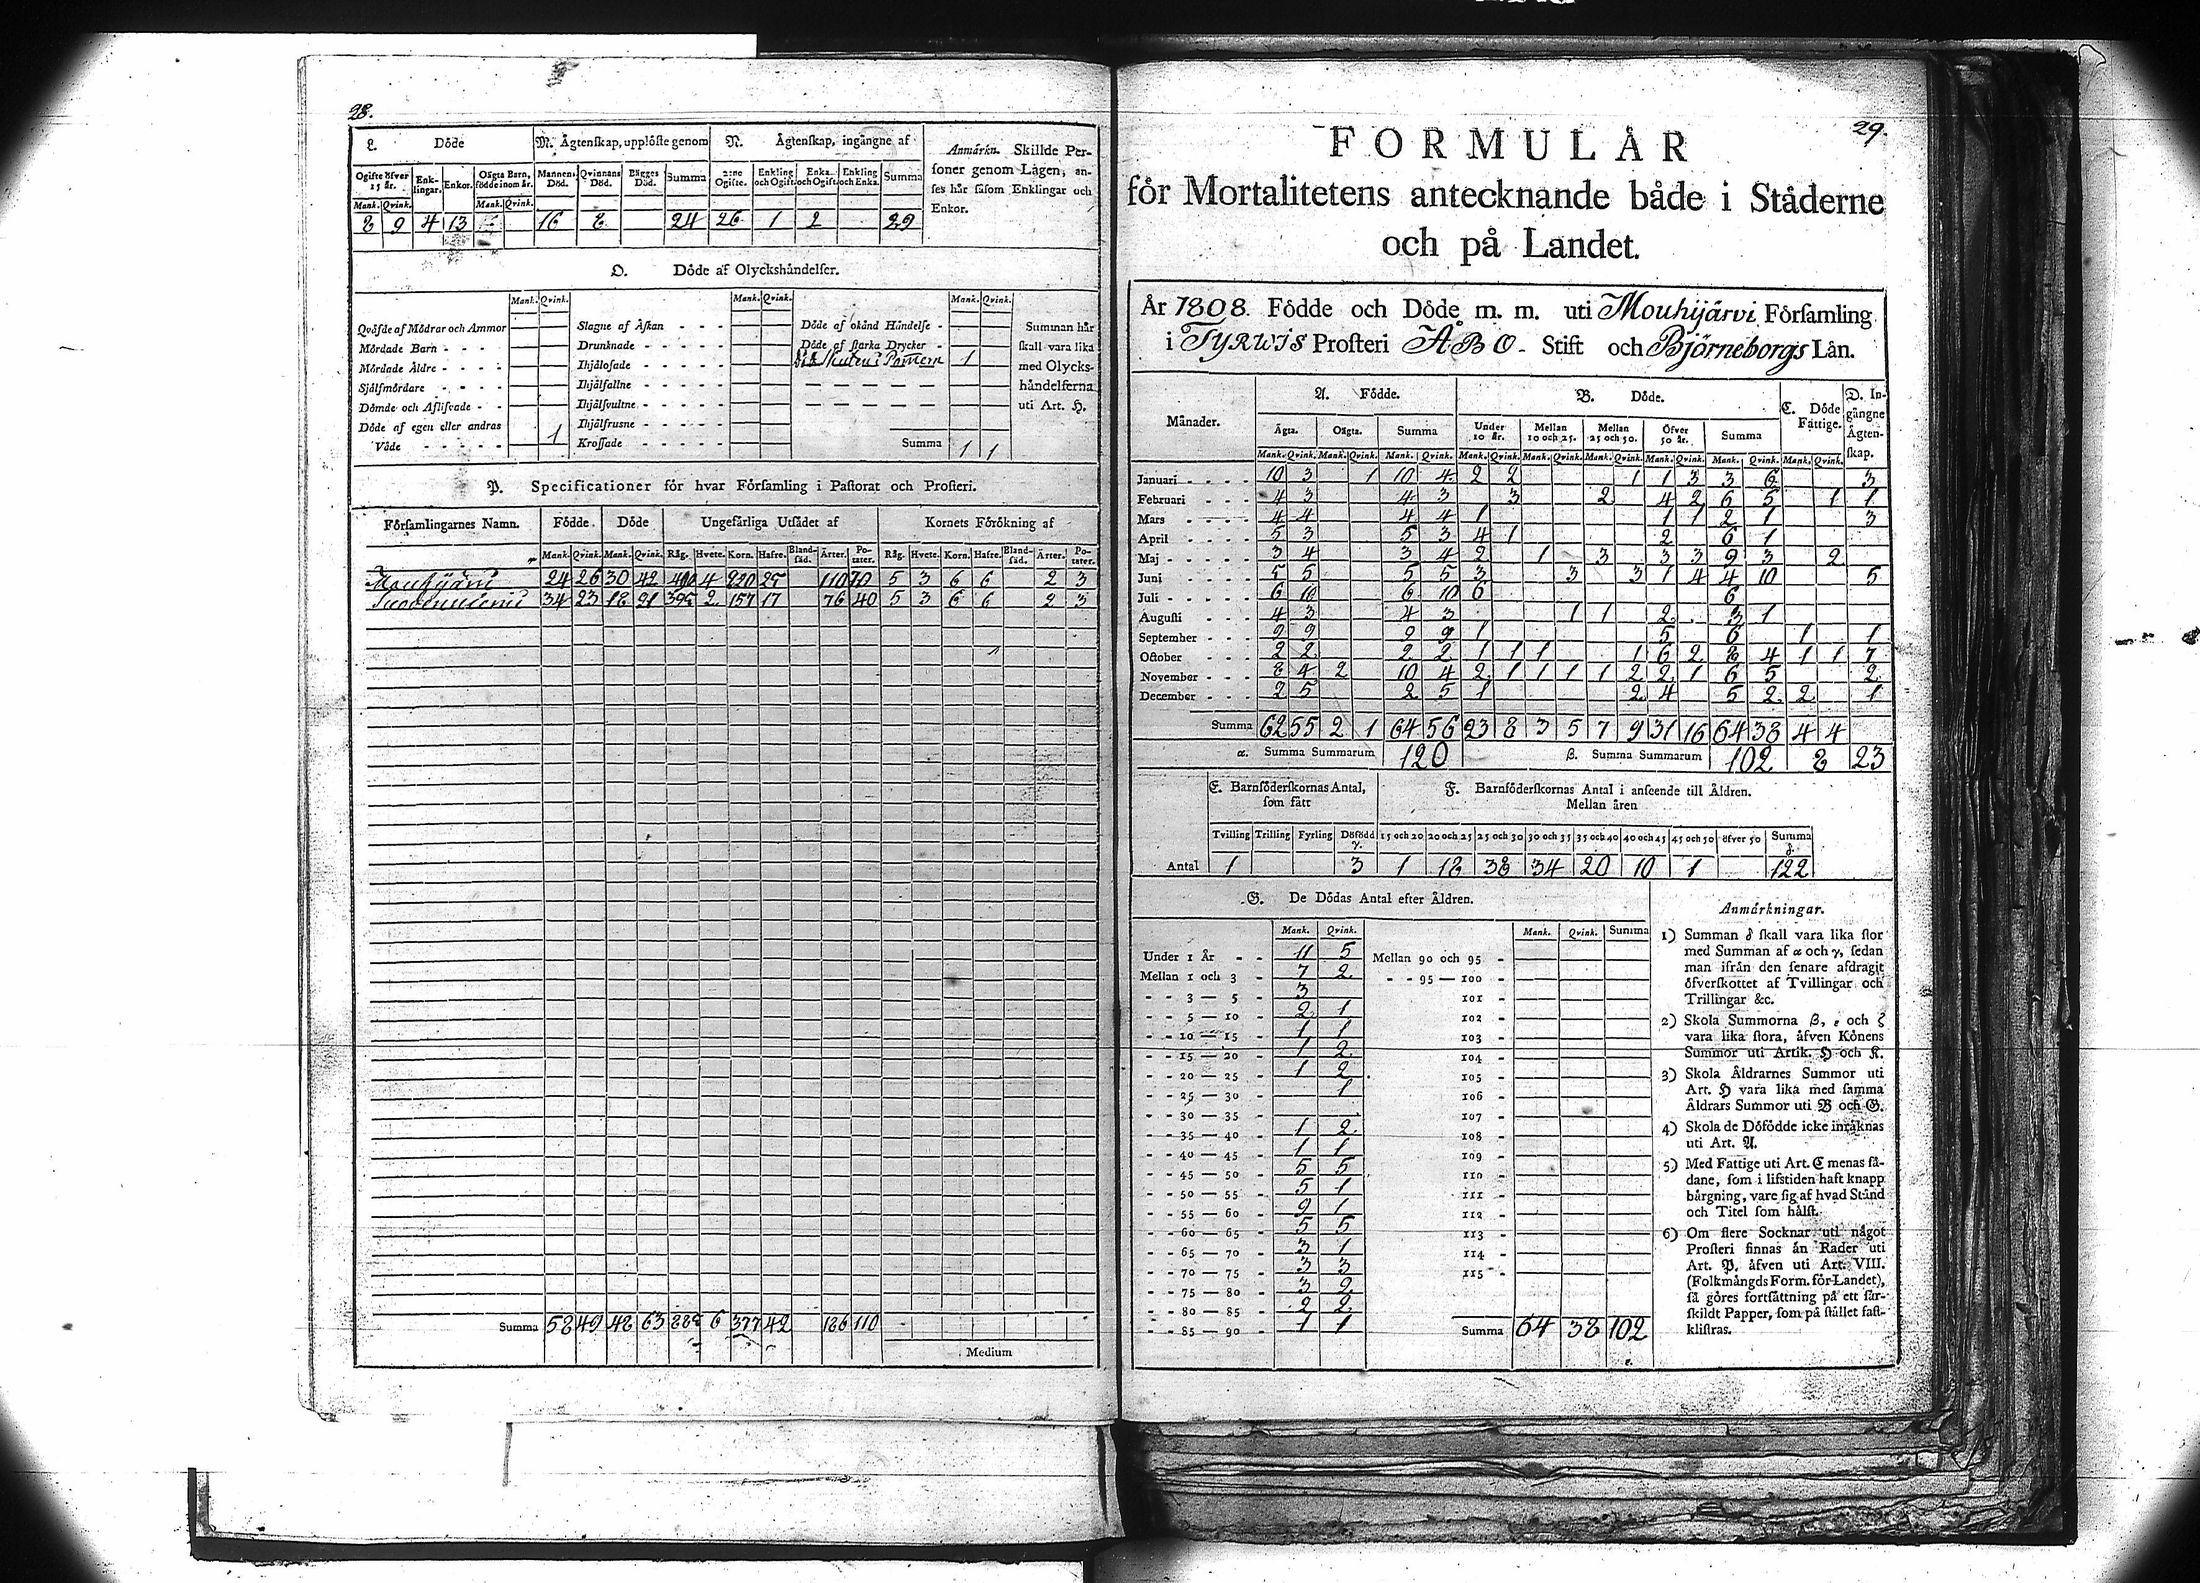 28.
L. Döde
M. Ägtenskap, upplöste genom
N. Ägtenskap, ingångne af
Anmärkn. Skillde Personer
soner genom Lagen, anses
ses här såsom Enklingar och
Enkor.
Ogifte öfver 15 år. Enklingar. Enkor. Oägta Barn, födde inom år. Mannens Död. Qvinnans Död. Bägges Död. Summa 2:ne Ogifte. Enkling och Ogift. Enka och Ogift. Enkling och Enka. Summa
Mank. Qvink. Mank. Qvink.
8 9 4 13 16 8 24 26 1 2 29
O. Döde af Olyckshändelser.
Mank. Qvink. Mank. Qvink. Mank. Qvink.
Qväfde af Mödrar och Ammor
Mördade Barn
Mördade Äldre
Sjelfmördare
Dömde och Aflifvade
Döde af egen eller andras
Våde 1
Slagne af Åskan
Drunknade
Ihjälosade
Ihjälfallne
Ihjälsvultne
Ihjälfrusne
Krossade
Döde af okänd Händelse
Döde af starka Drycker
1
Summa 1 1
Summan här
skall vara lika
med Olyckshändelserna
uti Art. H.
P. Specificationer för hvar Församling i Pastorat och Prosteri.
Församlingarnes Namn. Födde. Döde Ungefärliga Utsädet af Kornets Förökning af
Mank. Qvink. Mank. Qvink. Råg. Hvete. Korn. Hafre. Blandsäd. Ärter. Potater. Råg. Hvete. Korn. Hafre. Blandsäd. Ärter. Potater.
Mouhijärvi 24 26 30 42 490 4 220 25 110 70 5 3 6 6 2 3
Suodenniemi 34 23 18 21 395 2 157 17 76 40 5 3 6 6 2 3
Summa 58 49 48 63 885 6 377 42 186 110
Medium
29.
FORMULÅR
för Mortalitetens antecknande både i Städerne
och på Landet.
År 1808. Födde och Döde m. m. uti Mouhijärvi Församling
i TYRWIS Prosteri ÅBO Stift och Björneborgs Län.
Månader. A. Födde. B. Döde. C. Döde Fattige. D. Ingångne Ägtenskap.
Ägta. Oägta. Summa Under 10 år. Mellan 10 och 25. Mellan 25 och 50. Öfver 50 år. Summa
Mank. Qvink. Mank. Qvink. Mank. Qvink. Mank. Qvink. Mank. Qvink. Mank. Qvink. Mank. Qvink. Mank. Qvink. Mank. Qvink.
Januari 10 3 1 10 4 2 2 1 1 3 3 6 3
Februari 4 3 4 3 3 2 4 2 6 5 1 1
Mars 4 4 4 4 1 1 1 2 1 3
April 5 3 5 3 4 1 2 6 1
Maj 3 4 3 4 2 1 3 3 3 9 3 2
Juni 5 5 5 5 3 3 3 1 4 4 10 5
Juli 6 10 6 10 6 6
Augusti 4 3 4 3 1 1 2 3 1
September 9 9 9 9 1 5 6 1 1
October 2 2 2 2 1 1 1 1 6 2 8 4 1 1 7
November 8 4 2 10 4 2 1 1 1 1 2 2 1 6 5 2
December 2 5 2 5 1 2 4 5 2 2 1
Summa 62 55 2 1 64 56 23 8 3 5 7 9 31 16 64 38 4 4
α. Summa Summarum 120 β. Summa Summarum 102 8 23
E. Barnföderskornas Antal, som fått
F. Barnföderskornas Antal i anseende till Åldren.
Mellan åren
Tvilling Trilling Fyrling Döfödd γ. 15 och 20 20 och 25 25 och 30 30 och 35 35 och 40 40 och 45 45 och 50 öfver 50 Summa δ.
Antal 1 3 1 18 38 34 20 10 1 122
G. De Dödas Antal efter Åldren.
Mank. Qvink. Mank. Qvink. Summa
Under 1 År 11 5
Mellan 1 och 3 7 2
3 — 5 3
5 — 10 2 1
10 — 15 1 1
15 — 20 1 2
20 — 25 1 2
25 — 30 1
30 — 35
35 — 40 1 2
40 — 45 1 1
45 — 50 5 5
50 — 55 5 1
55 — 60 9 1
60 — 65 5 5
65 — 70 3 1
70 — 75 3 3
75 — 80 3 2
80 — 85 2 2
85 — 90 1 1
Mellan 90 och 95
95 — 100
101
102
103
104
105
106
107
108
109
110
111
112
113
114
115
Summa 64 38 102
ε.
Anmärkningar.
1) Summan δ skall vara lika stor
med Summan af α och γ, sedan
man ifrån den senare afdragit
öfverskottet af Tvillingar och
Trillingar &c.
2) Skola Summorna β, ε och ζ
vara lika stora, äfven Könens
Summor uti Artik. H och K.
3) Skola Åldrarnes Summor uti
Art. H vara lika med samma
Åldrars Summor uti B och G.
4) Skola de Döfödde icke inräknas
uti Art. A.
5) Med Fattige uti Art. C menas sådane,
som i lifstiden haft knapp
bärgning, vare sig af hvad Stånd
och Titel som hälst.
6) Om flere Socknar uti något
Prosteri finnas än Rader uti
Art. P, äfven uti Art. VIII.
(Folkmängds Form. för Landet),
så göres fortsättning på ett särskildt
Papper, som på stället fastklistras.